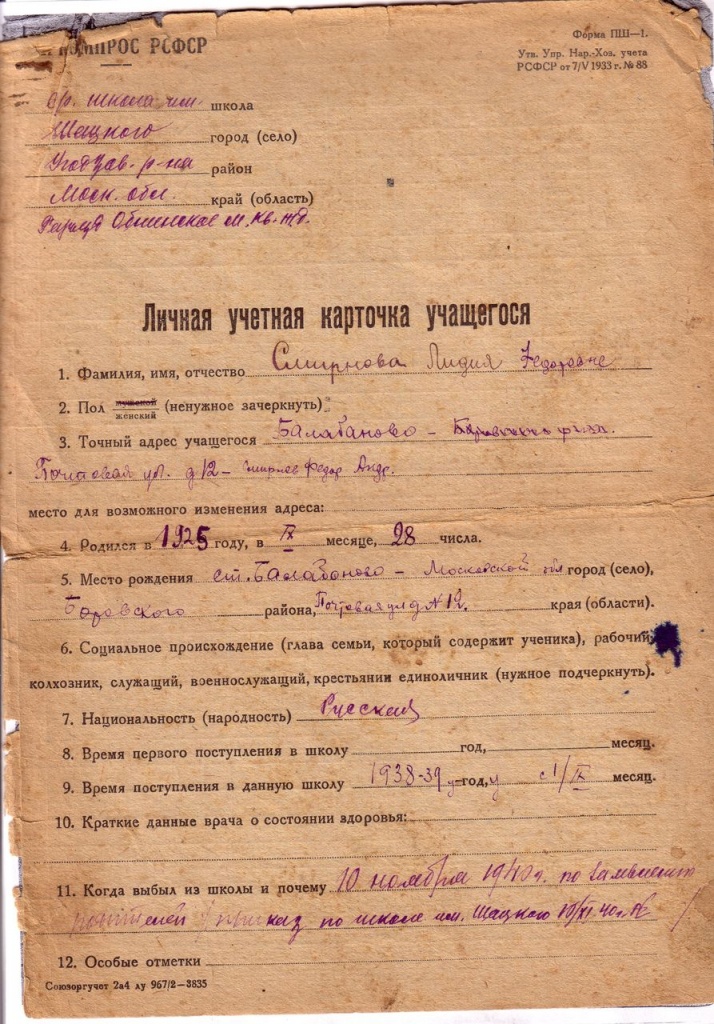 КОМПРОС РСФСР
Форма ПШ—1.
Утв. Упр. Нар.-Хоз. учета
РСФСР от 7/V 1933 г. № 88
ср. школа им. школа
Шацкого город (село)
Угодзав. р-на район
Моск. обл. край (область)
Обнинское м. кв. ж/д.
Личная учетная карточка учащегося
1. Фамилия, имя, отчество Смирнова Лидия Федоровне
2. Пол мужской женский (ненужное зачеркнуть)
3. Точный адрес учащегося Балабаново –
Почтовая ул. д 12 – Смирнов Федор Андр.
место для возможного изменения адреса:
4. Родился в 1925 году, в IX месяце, 28 числа.
5. Место рождения ст. Балабоново – Московской обл город (село),
Боровского района, Почтовая ул д № 12. края (области).
6. Социальное происхождение (глава семьи, который содержит ученика), рабочий,
колхозник, служащий, военнослужащий, крестьянин единоличник (нужное подчеркнуть).
7. Национальность (народность) Русская
8. Время первого поступления в школу год, месяц.
9. Время поступления в данную школу 1938-39 у-год, с 1/IX месяц.
10. Краткие данные врача о состоянии здоровья:
11. Когда выбыл из школы и почему 10 ноября 1940 г. по
родителей приказ по школе им. Шацкого 10/XI 40 г. №
12. Особые отметки
Союзоргучет 2а4 лу 967/2—3835